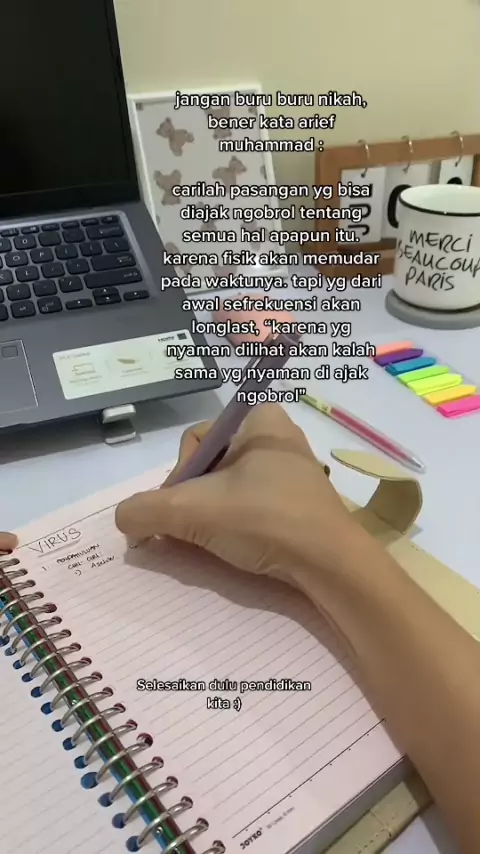 jangan buru buru nikah,
bener kata arief
muhammad :
carilah pasangan yg bisa
diajak ngobrol tentang
semua hal apapun itu.
karena fisik akan memudar
pada waktunya. tapi yg dari
awal sefrekuensi akan
longlast, "karena yg
nyaman dilihat akan kalah
sama yg nyaman di ajak
ngobrol"
MERCI
BEAUCOUP
PARIS
VIRUS
1. PENDAHULUAN
CIRI-CIRI
Selesaikan dulu pendidikan
kita :)
JOYKO